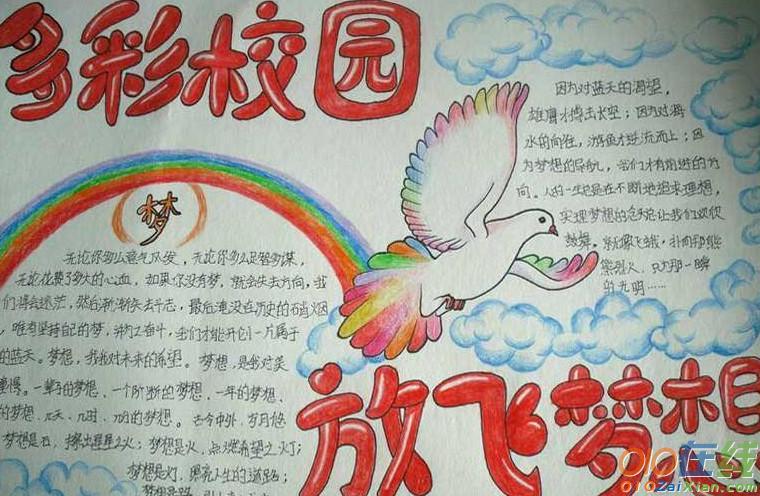 多彩校园
因为对蓝天的渴望,
雄鹰才搏击长空；因为对海
水的向往，游鱼才逆流而上；因
为梦想的导航，我们才有前进的方
向。人的一生总是在不断地追求理想，
实现梦想的念头让我们欢欣
鼓舞。就像飞蛾，扑向那熊
熊烈火，只为那一瞬
的光明……
梦
无论你多么意气风发，无论你多么足智多谋，
无论花费了多大的心血，如果你没有梦，就会失去方向，我
们将会迷茫，然后渐渐失去斗志，最后淹没在历史的硝烟
，唯有坚持自己的梦，并为之奋斗，我们才能开创一片属于
的蓝天。梦想，我对未来的希望。梦想，是我对美
憧憬。一辈子的梦想、一个阶段的梦想、一年的梦想、
的梦想，几天、几时、几分的梦想。古今中外，岁月悠
梦想是石，擦出星星之火；梦想是火，点燃希望之灯；
梦想是灯，照亮人生的道路；
梦想是路，引
放飞梦想
010在线
010ZaiXian.com